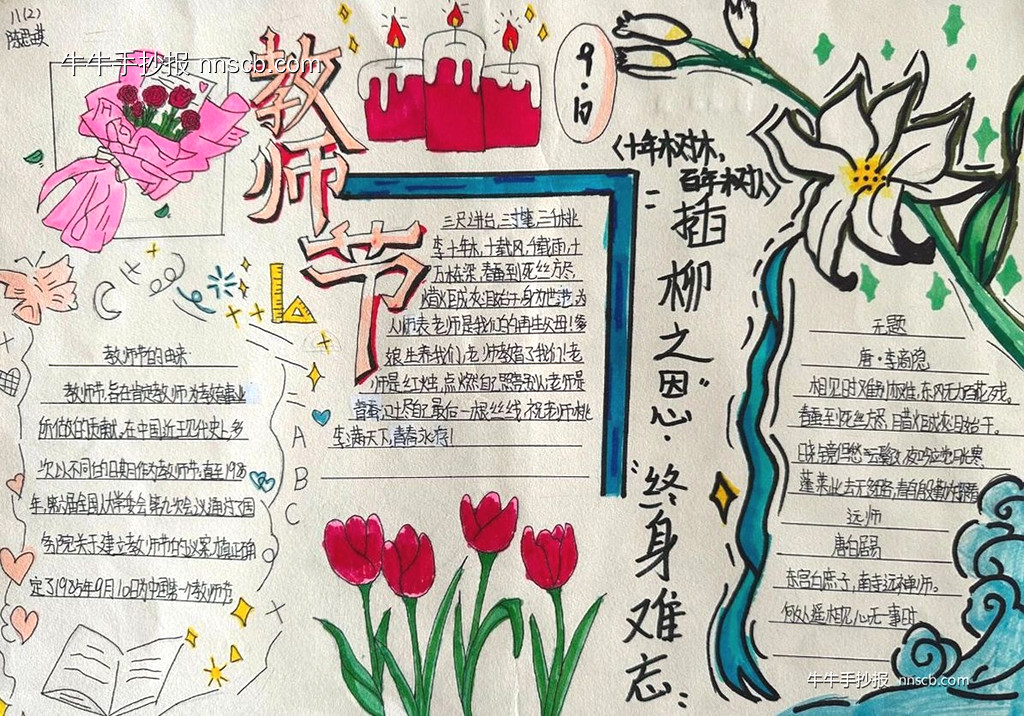 八(2)
牛牛手抄报 nnscb.com
教师节
9.10
《十年树木,
百年树人》
教师节的由来
教师节,旨在肯定教师为教育事业
所做的贡献。在中国近现代史上,多
次以不同的日期作为教师节。直至1985
年,第六届全国人大常委会第九次会议通过了国
务院关于建立教师节的议案,才真正确
定了1985年9月10日为中国第一个教师节
A
B
C
三尺讲台,三寸笔,三寸舌,三千桃
李,十年树木,十载风,十载雨,十
万栋梁,春蚕到死丝方尽,
蜡炬成灰泪始干,身为世范,为
人师表,老师是我们的再生父母!爹
娘生养我们,老师教育了我们!老
师是红烛,点燃自己照亮别人,老师是
春蚕,吐尽自己最后一根丝线,祝老师桃
李满天下,青春永存!
"插柳之恩"
"终身难忘"
无题
唐·李商隐
相见时难别亦难,东风无力百花残。
春蚕到死丝方尽,蜡炬成灰泪始干。
晓镜但愁云鬓改,夜吟应觉月光寒。
蓬莱此去无多路,青鸟殷勤为探看
远师
唐白居易
东宫白庶子,南寺远禅师。
何处遥相见,心无一事时
牛牛手抄报 nnscb.com